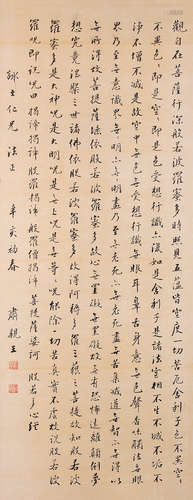 觀自在菩薩行深般若波羅蜜多時照見五蘊皆空度一切苦厄舍利子色不異空空
不異色色即是空空即是色受想行識亦復如是舍利子是諸法空相不生不滅不垢不
淨不增不減是故空中無色無受想行識無眼耳鼻舌身意無色聲香味觸法無眼
界乃至無意識界無無明亦無無明盡乃至無老死亦無老死盡無苦集滅道無智亦無得以
無所得故菩提薩埵依般若波羅蜜多故心無罣礙無罣礙故無有恐怖遠離顛倒夢
想究竟涅槃三世諸佛依般若波羅蜜多故得阿耨多羅三藐三菩提故知般若波
羅蜜多是大神咒是大明咒是無上咒是無等等咒能除一切苦真實不虛故說般若波
羅咒即說咒曰揭諦揭諦般羅揭諦般羅僧揭諦菩提薩婆訶 般若多心經
仁兄 法正 辛亥初春 肅親王